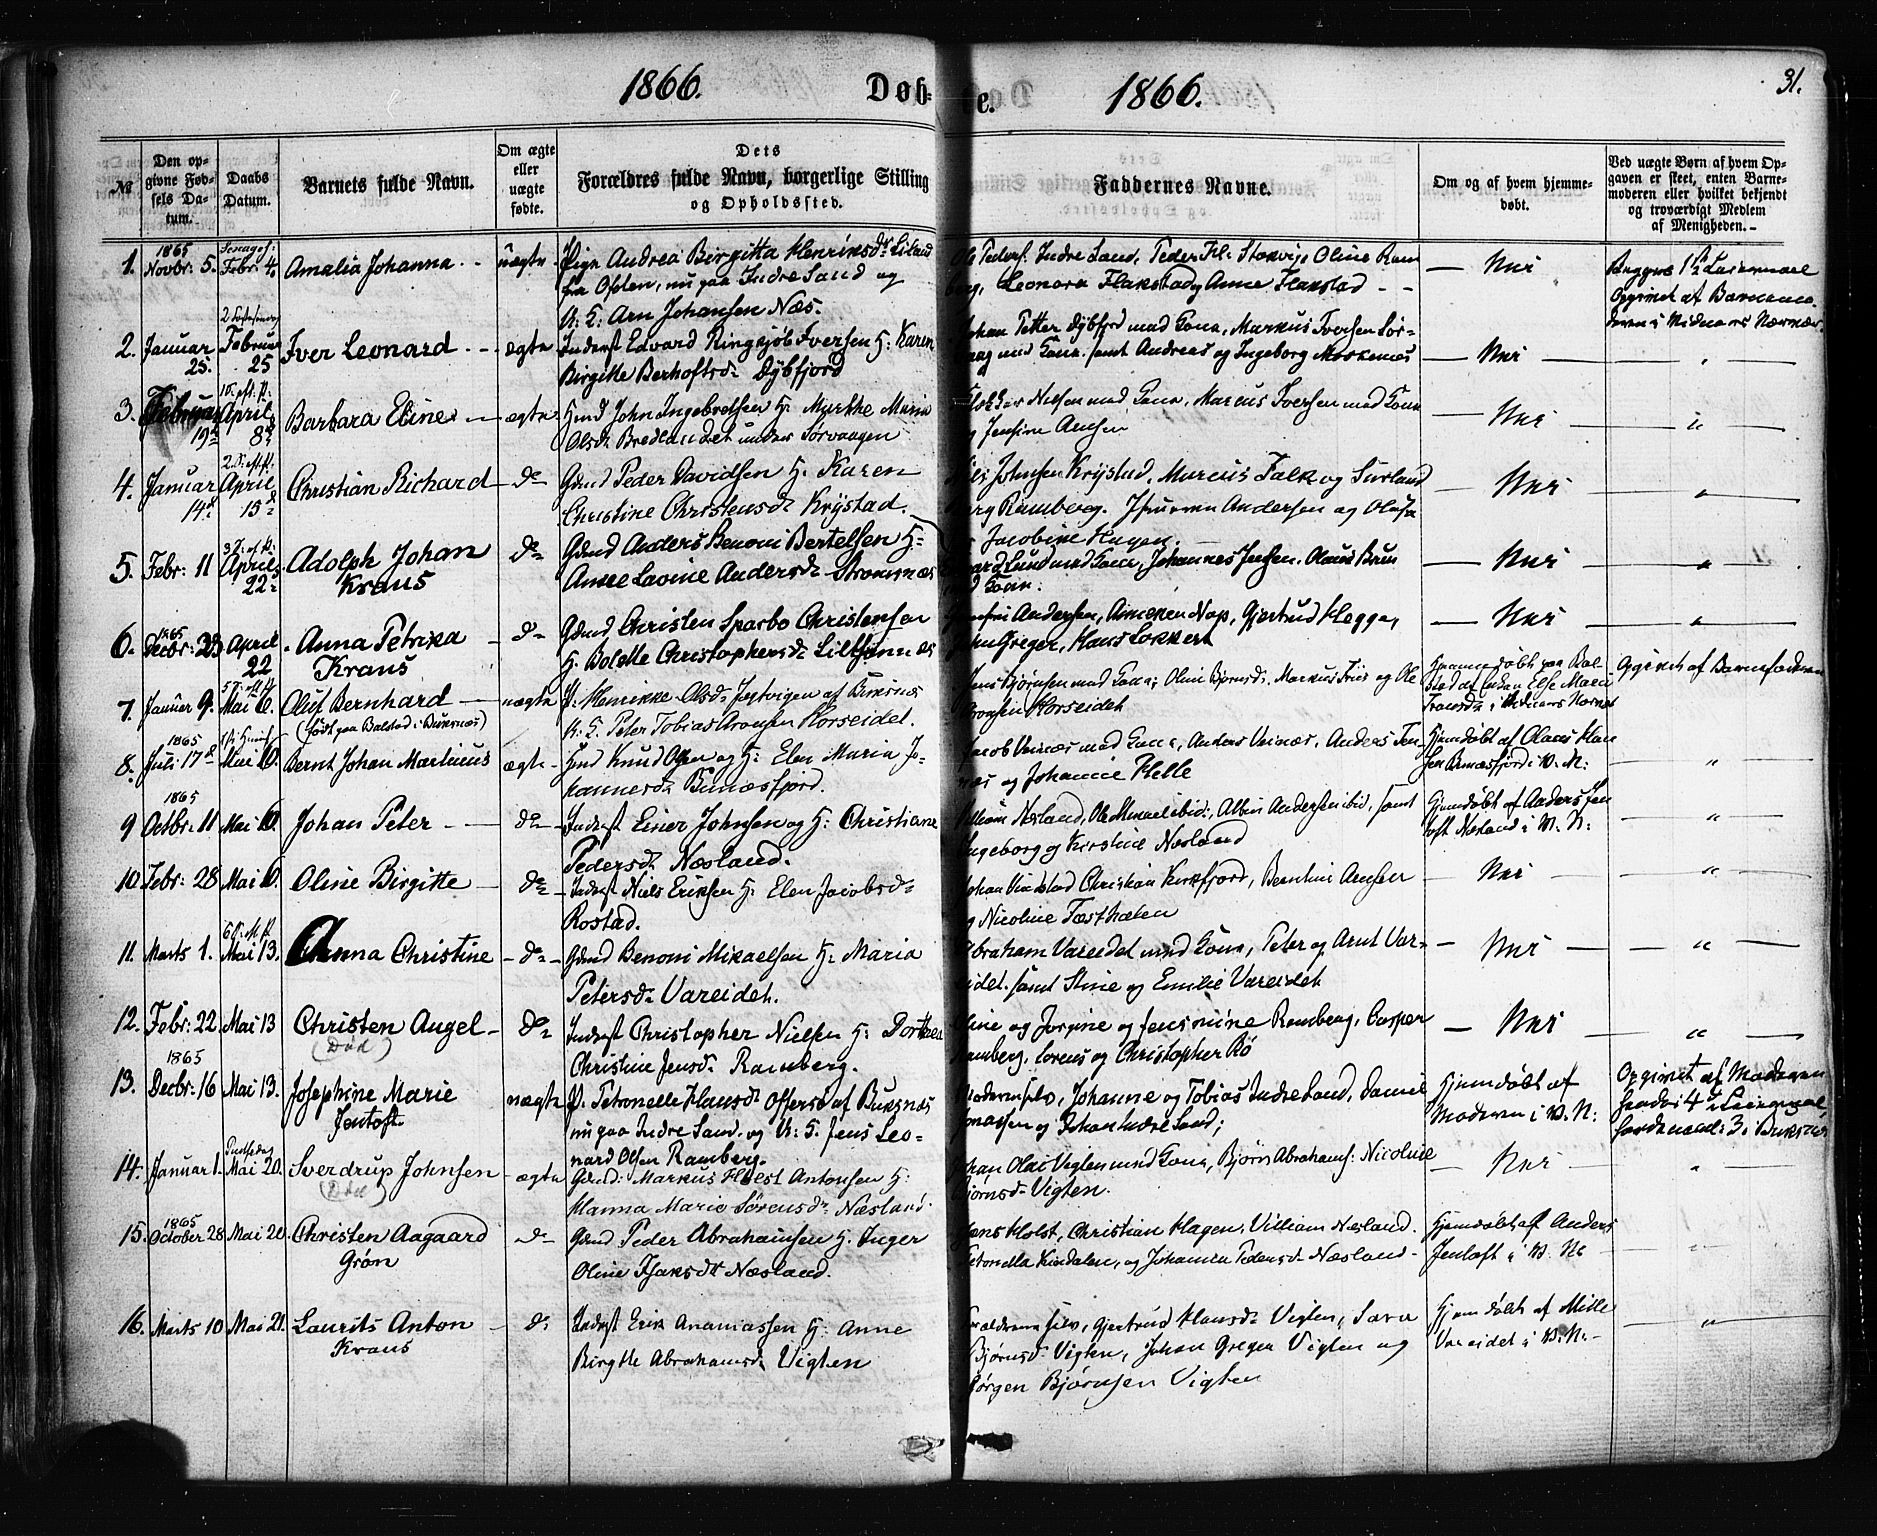 1866. Døb- te. 1866. 31.
No
Den op-
givne Fød-
sels Da-
tum.
Daabs
Datum.
Barnets fulde Navn.
Om ægte
eller
uægte
fødte.
Dets
Forældres fulde Navn, borgerlige Stilling
og Opholdssted.
Faddernes Navne.
Om og af hvem hjemme-
døbt.
Ved uægte Børn af hvem Op-
gaven er skeet, enten Barne-
moderen eller hvilket bekjendt
og troværdigt Medlem
af Menigheden.
1. 1865 Novbr: 5. Febr: 4. Amalia Johanna uægte Pige Andrea Birgitta Henriksdr
fra Ofoten, nu paa Indre Sand og
U: K: Arn Johansen Næs.
Peders. Indre Sand, Peder Kl: Stokvig, Oline Ram
berg, Leonora Flakstad og Anne Flakstad
Nei
Opgivet af Barnemo
deren
2. Januar 25. Februar 25 Iver Leonard ægte Inderst Edvard Ringsjöb Iversen H: Karen
Birgitte Berhoftsdr Dybfjord
Johan Petter Dybfjord med Kona, Markus Iversen Sør-
vaag med Kona samt Andreas og Ingeborg Moskenæs
Nei "
3. Februar 19de April 8de Barbara Eline ægte Gmd John Ingebretsen H: Myrthe Maria
Olsdr Bredlandet under Sørvaagen
Nilsen med Kona, Marcus Iversen med Kona
og Jensine Amsen
Nei "
4. Januar 14d 2 S: eft P: April 15d Christian Richard do Gmd Peder Davidsen H: Karen
Christine Christensdr Krystad.
Nils Johnsen Krystad, Marcus Falk og
Ramberg. Andersen og Olufa
Jacobine Hagen.
Nei "
5. Febr: 11 April 22 Adolph Johan
Kraus
do Gmd Anders Benoni Bertelsen H:
Anne Lavine Andersdr Strømsnæs
Lund med Kona, Johannes Jensen. Olaus Brun
med Kona.
Nei "
6. 1865 Decbr: 23 April 22 Anna Petrika
Kraus
do Gmd Christen Sparbo Christensen
H: Bolette Christophersdr
Andersen, Ameken Nap, Gjertrud Klegga,
John Greger, Hans Lokkert
Nei "
7. Januar 9. Mai 6. Oluf Bernhard
(født paa Balstad i Buksnæs)
uægte P: Henrikke Olsdr Jertvigen af Buksnæs
U: K: Peter Tobias Aronsen Horseidet.
Jens Bjørnsen med Kona, Olini Bjørnsdr. Markus Friis og Ole
Aronsen Horseidet
Hjemmedøbt paa Bal-
stad af Enken Else Maria
Opgivet af Barnefaderen
8. 1865 Juli 17d Mai 10. Bernt Johan Martinus ægte Gmd Knud Olsen og H: Elen Maria Jo-
hannesdr Bunæsfjord.
Jacob Veinæs med Kona, Anders Veinæs, Anders
og Johanne Helle
Hjemdøbt af Olaus Han
sen Bunæsfjord i V. N:
"
9 1865 Octbr: 11 Mai 10. Johan Peter do Inderst Einer Johnsen og H: Christiane
Pedersdr Næsland.
William Næsland, Ole Mikael ibid:, Albin Andersen ibid, samt
Ingeborg og Kirstine Næsland
Hjemdøbt af Anders Jen
toft Næsland i V. N:
"
10. Febr: 28 Mai 10. Oline Birgitte do Inderst Niels Eriksen H: Elen Jacobsdr
Rostad.
Johan Vindstad Christian Kirkfjord, Berntine Arnsen
og Nicoline Tæsthælen
Nei "
11. Marts 1. Mai 13. Anna Christine do Gmd Benoni Mikaelsen H: Maria
Petersdr Vareidet.
Abraham Vareidet med Kona, Peter og Arnt Var-
eidet. samt Stine og Emilie Vareidet
Nei "
12. Febr: 22. Mai 13 Christen Angel
(Død)
do Inderst Christopher Nielsen H: Dorthea
Christine Jensdr Ramberg.
Oline og Jorgine og Jensmine Ramberg, Casper
Ramberg, Lorents og Christopher Bø
Nei "
13. 1865 Decbr: 16 Mai 13. Josephine Marie
Jentoft.
uægte P: Petronelle Hansdr Offersø af Buksnæs
nu paa Indre Sand. og U: K: Jens Leo-
nard Olsen Ramberg.
Moderen selv, Johanne og Tobias Indre Sand, Daniel
Jonassen og Johan Indre Sand;
Hjemdøbt af
Moderen i V. N:
Opgivet af Moderen
14. Januar 1. Mai 20. Sverdrup Johnsen
(Død)
ægte Gmd: Markus Holst Antonsen H:
Hanna Marie Sörensdr Næsland.
Johan Olai Vigten med Kona, Bjørn Abrahams: Nicoline
Bjørnsdr Vigten.
Nei "
15. 1865 October 28 Mai 20. Christen Aagaard
Grøn
do Gmd Peder Abrahamsen H: Inger
Oline Isaksdr Næsland.
Jens Holst, Christian Hagen, Villiam Næsland.
Petronella Kindalen, og Johanna Pedersdr Næsland
Hjemdøbt af Anders
Jentoft i V. N:
"
16. Marts 10 Mai 21. Laurits Anton
Kraus
do Inderst Erik Ananiassen H: Anne
Birgitte Abrahamsdr Vigten
Forældrene selv, Gjertrud Hansdr Vigten, Sara
Bjørnsdr Vigten, Johan Greger Vigten og
Jørgen Bjørnsen Vigten
Hjemdøbt af Mille
Vareidet i V. N:
"